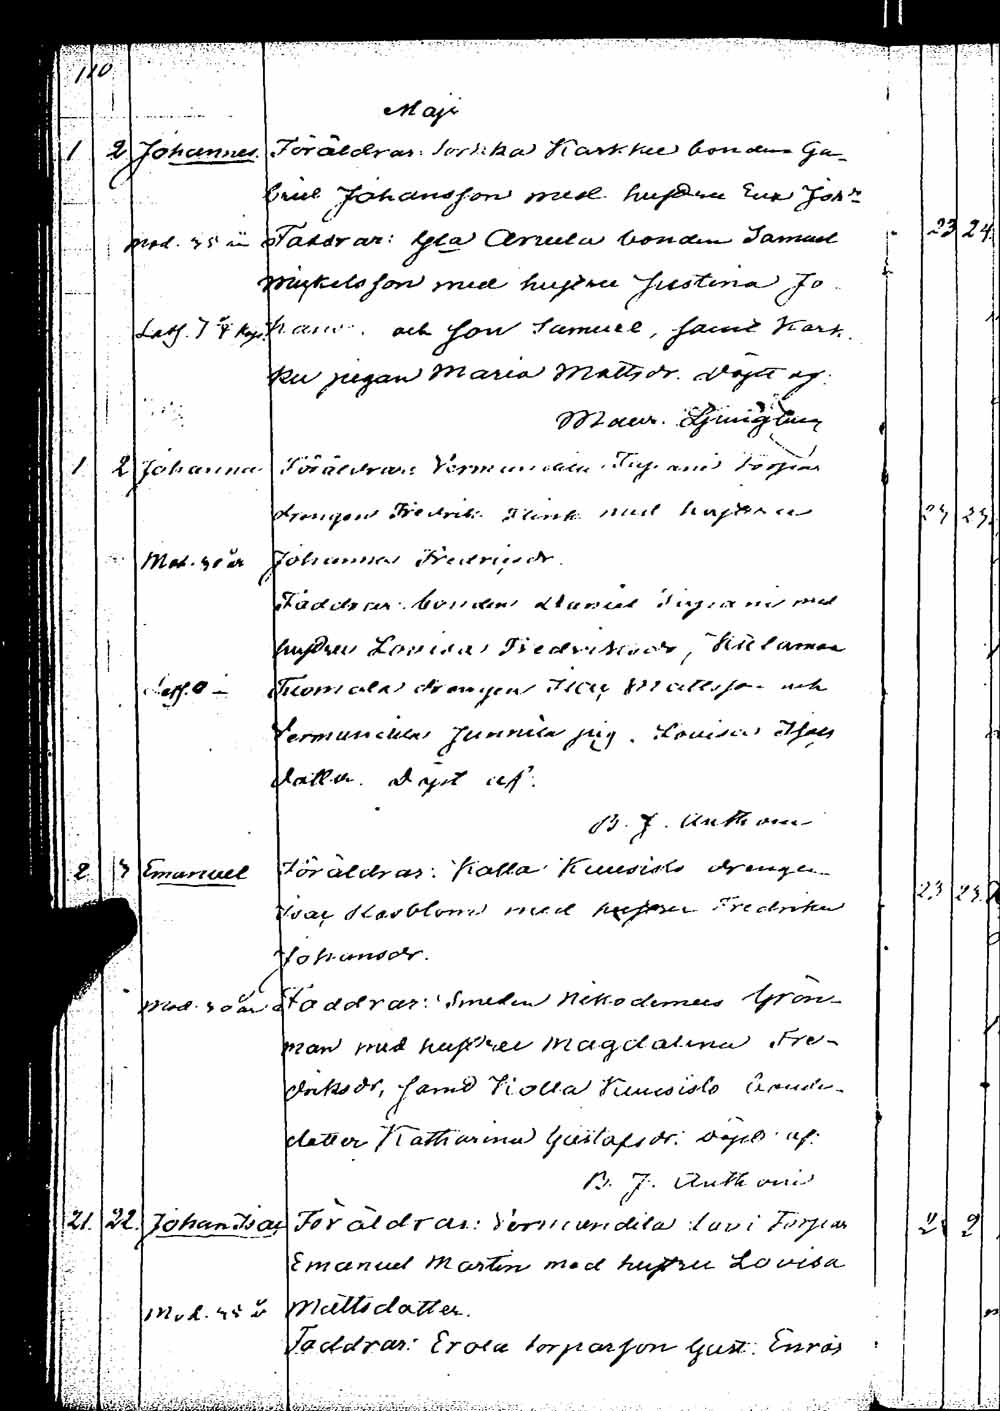 110
Maji
1 2 Johannes. Föräldrar: Karkku bonden Ga-
briel Johansson med hustru Eva Joh:
Mod. 35 år Faddrar: Gla Anula bonden Samuel
Mickelsson med hustru Justina Jo
hans. och son Samuel, samt Kark
ku pigan Maria Mattsdr. Döpt af:
Maur. Ljungberg
1 2 Johanna Föräldrar: Vermundila torpar
drengen Fredrik Flink med hustru
Mod. 30 år Johanna Fredriksdr.
Faddrar: bonden Daniel med
hustru Lovisa Fredriksdr,
Tuomala drengen Isac Mattsson och
Vermundila Junnila pig. Lovisa Isacs
dotter. Döpt af:
B. J. Anthoni
2 3 Emanuel Föräldrar: Kolla Kuusisto drengen
Isac med hustru Fredrika
Johansdr.
Mod. 30 år Faddrar: Smeden Nikodemus Grön-
man med hustru Magdalena Fre-
driksdr, samt Kolla Kuusisto bonde-
dotter Katharina Gustafsdr. Döpt af:
B. J. Anthoni
21. 22. Johan Isac Föräldrar: Vermundila Torpar
Emanuel Martin med hustru Lovisa
Mod. 35 år Mattsdotter.
Faddrar: Erola torparson Gust. Enros
23 24.
23
2